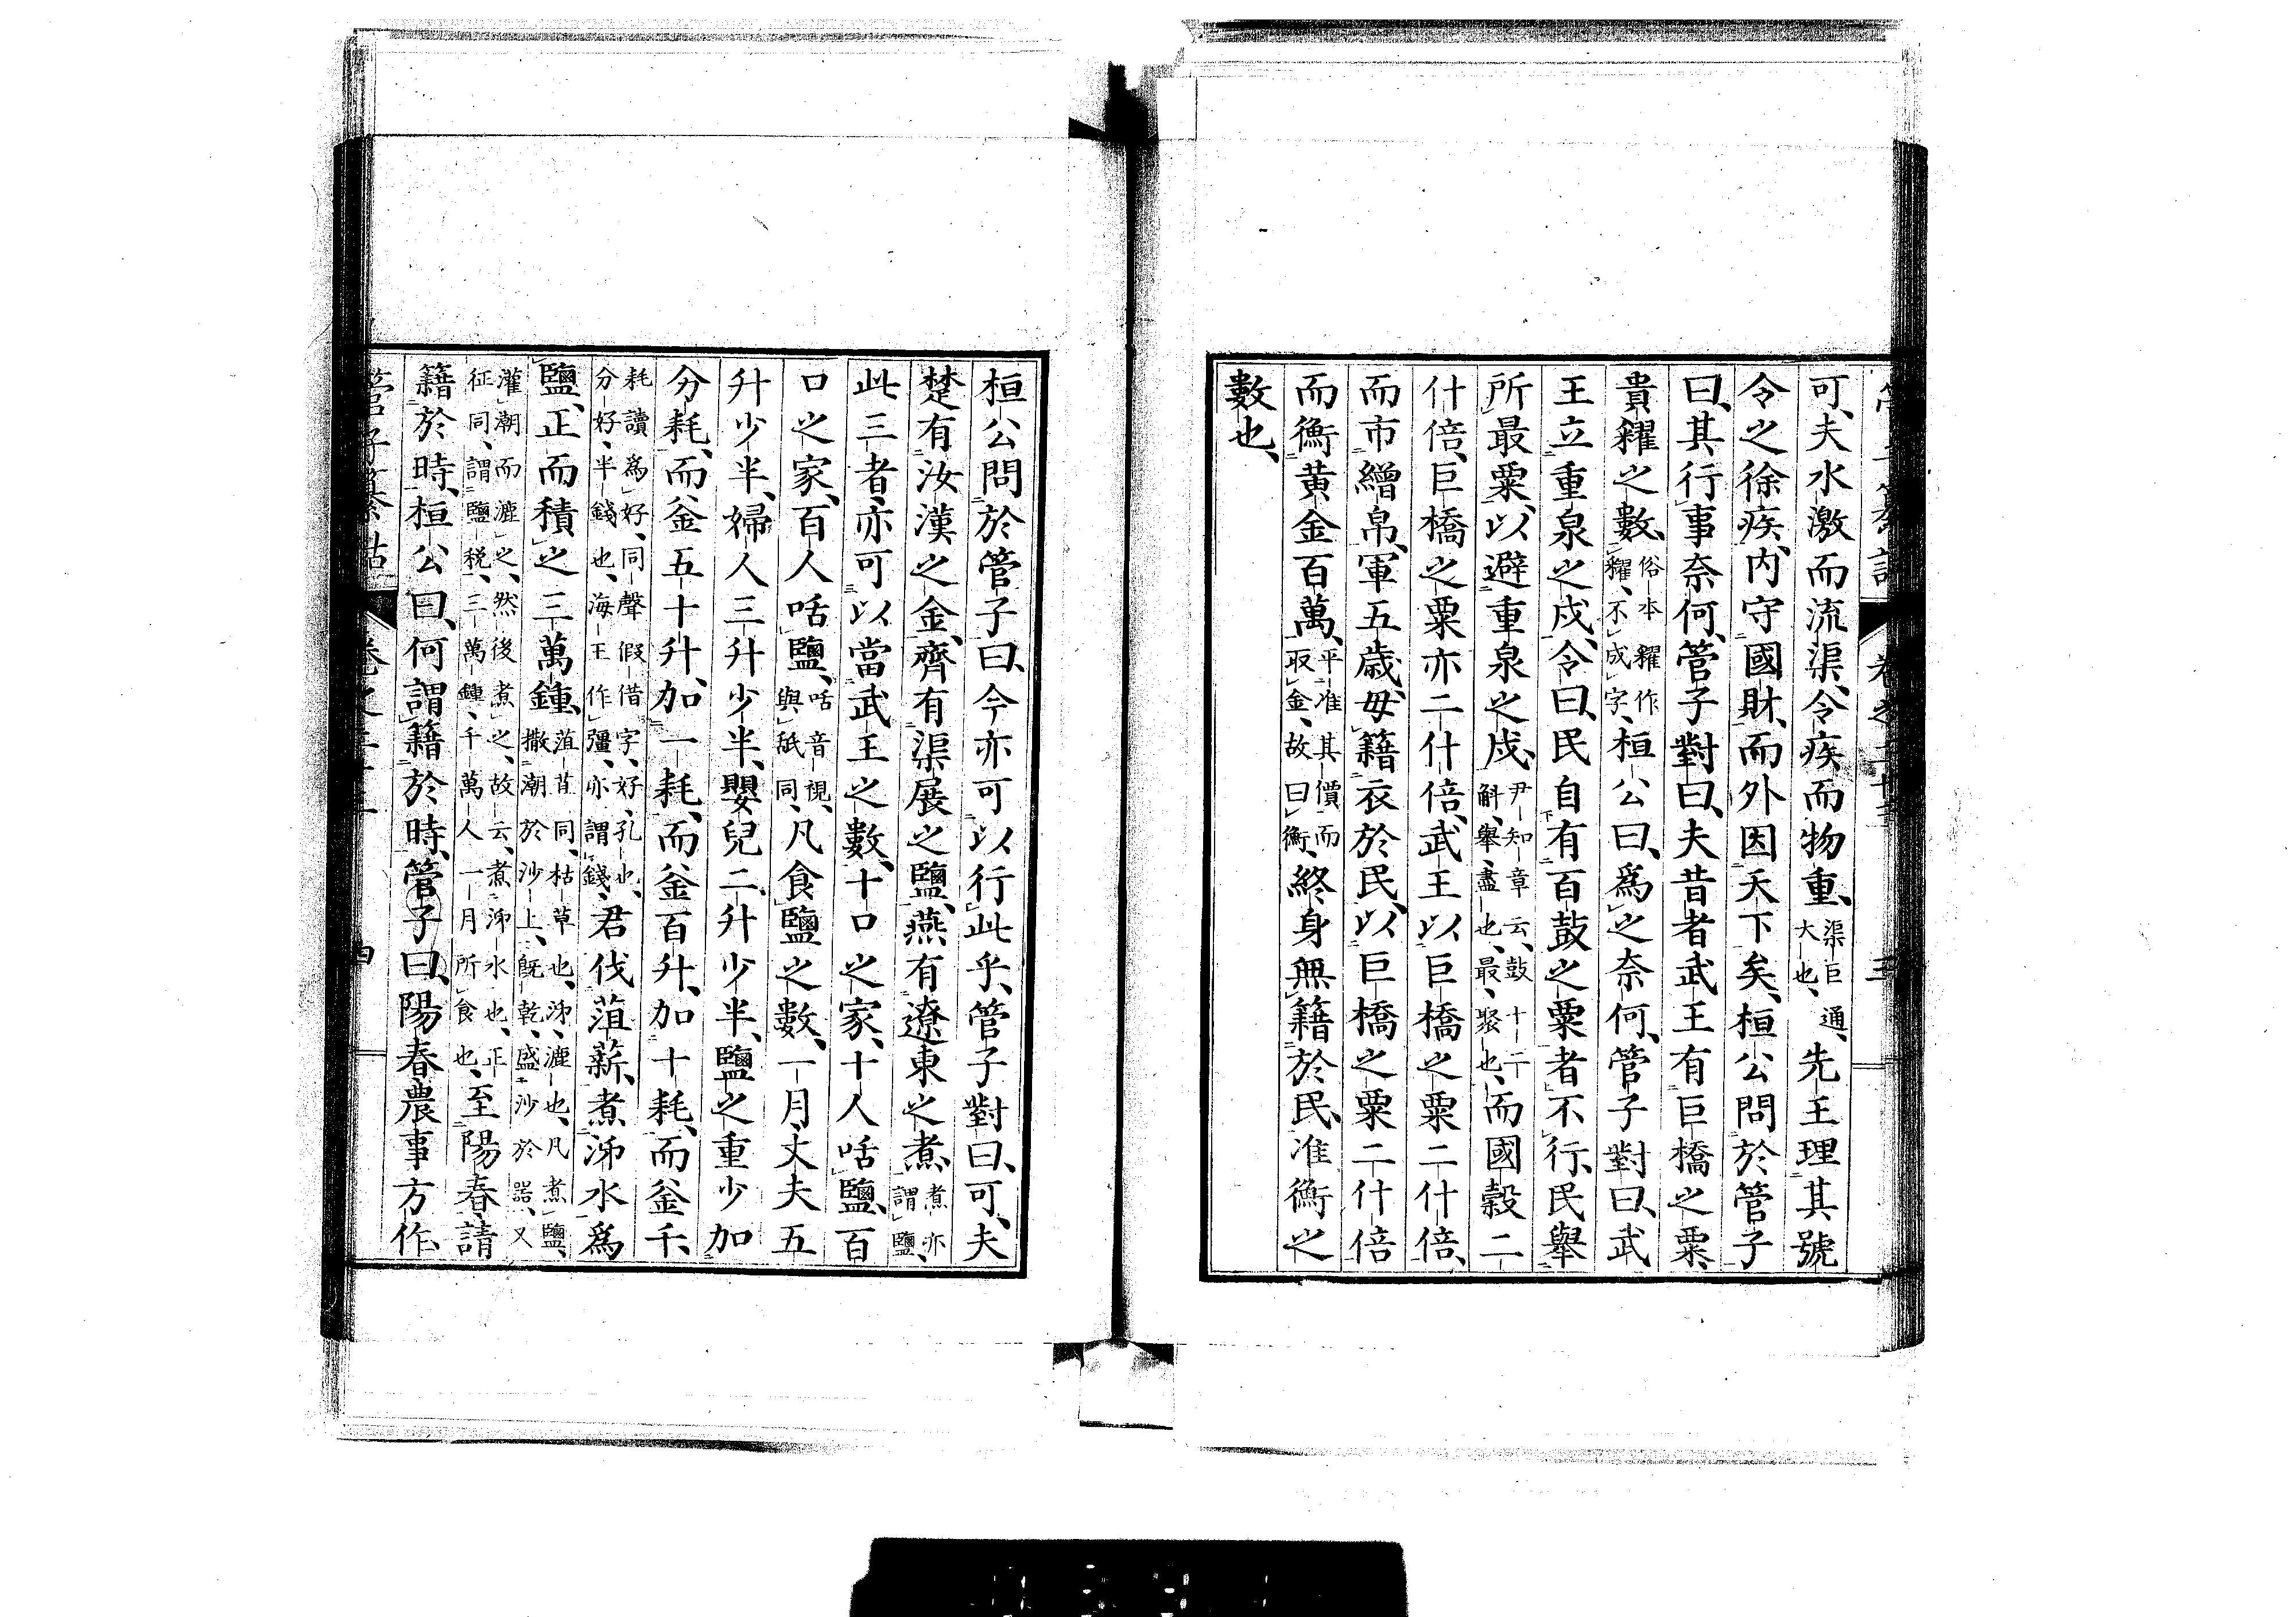 可、夫水激而流渠、令疾而物重、渠巨通、大也、先王理其號
令之徐疾、內守國財、而外因天下矣、桓公問於管子
曰、其行事奈何、管子對曰、夫昔者武王有巨橋之粟、
貴糴之數、俗本糴作糶、不成字、桓公曰、爲之奈何、管子對曰、武
王立重泉之戍、令曰、民自有百鼓之粟者不行、民舉
所最粟、以避重泉之戍、尹知章云、鼓十二斛、舉盡也、最、聚也、而國穀二
什倍、巨橋之粟亦二什倍、武王以巨橋之粟二什倍、
而市繒帛、軍五歲毋籍衣於民、以巨橋之粟二什倍
而衡黃金百萬、平准其價而取金、故曰衡、終身無籍於民、准衡之
數也、
桓公問於管子曰、今亦可以行此乎、管子對曰、可、夫
楚有汝漢之金、齊有渠展之鹽、燕有遼東之煮、煮亦謂鹽、
此三者、亦可以當武王之數、十口之家、十人咶鹽、百
口之家、百人咶鹽、咶音視、與舐同、凡食鹽之數、一月丈夫五
升少半、婦人三升少半、嬰兒二升少半、鹽之重少加
分耗、而釜五十升、加一耗、而釜百升、加十耗、而釜千、
耗讀爲好、同聲假借字、好、孔也、分好、半錢也、海王作彊、亦謂錢、君伐菹薪、煮泲水爲
鹽、正而積之三萬鍾、菹苴同、枯草也、泲、漉也、凡煮鹽、撒潮於沙上、旣乾、盛沙於器、又
灌潮而漉之、然後煮之、故云、煮泲水也、正征同、謂鹽税、三萬鍾、千萬人一月所食也、至陽春、請
籍於時、桓公曰、何謂籍於時、管子曰、陽春農事方作、
四